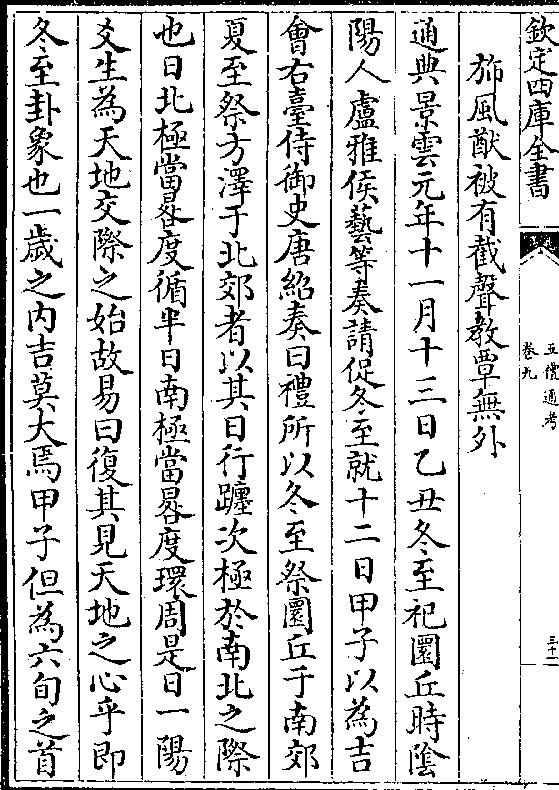 欽定四庫全書
五禮通考
卷九
三十一
斾風猷被有截聲教覃無外
通典景雲元年十一月十三日乙丑冬至祀圜丘時陰
陽人盧雅侯藝等奏請促冬至就十二日甲子以為吉
會右臺侍御史唐紹奏曰禮所以冬至祭圜丘于南郊
夏至祭方澤于北郊者以其日行躔次極於南北之際
也日北極當晷度循半日南極當晷度環周是日一陽
爻生為天地交際之始故易曰復其見天地之心乎即
冬至卦象也一歳之内吉莫大焉甲子但為六旬之首